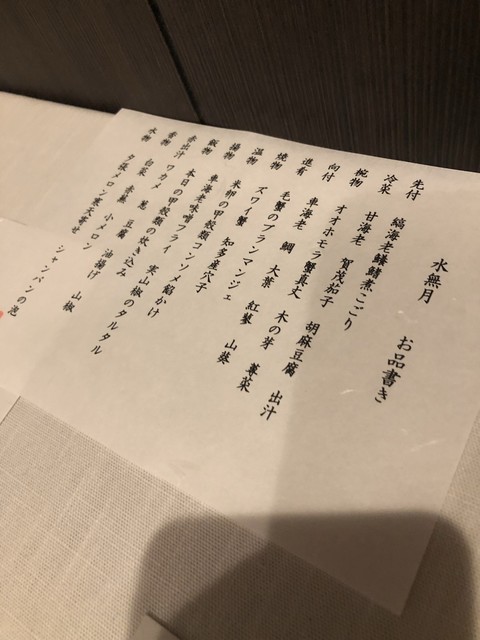 水無月　お品書き
先付　縞海老鱶鰭煮こごり
冷菜　甘海老　賀茂茄子　胡麻豆腐　出汁
椀物　オオホモラ蟹真丈　木の芽　蓴菜
向付　車海老　鯛　大葉　紅蓼　山葵
進肴　毛蟹のブランマンジェ
焼物　ズワイ蟹　知多産穴子
温物　米卵の甲殻類コンソメ餡かけ
揚物　車海老味噌フライ　実山椒のタルタル
飯物　本日の甲殻類の炊き込み
赤出汁　ワカメ　葱　豆腐　油揚げ　山椒
香物　白菜　赤蕪　小メロン
水物　夕張メロン寒天寄せ　シャンパンの泡